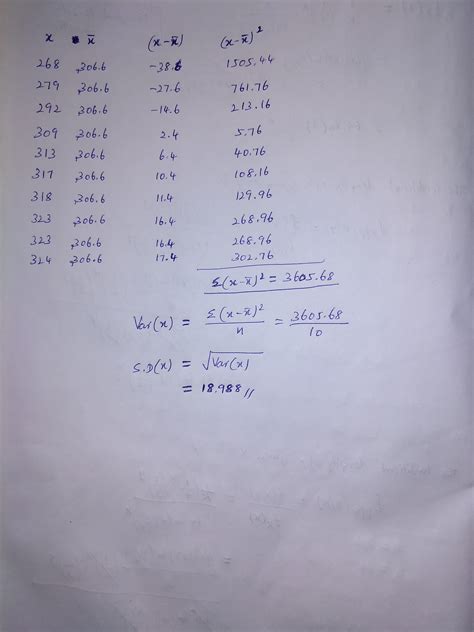 x x̄ (x-x̄) (x-x̄)²
268 ,306.6 -38.6 1505.44
279 ,306.6 -27.6 761.76
292 ,306.6 -14.6 213.16
309 ,306.6 2.4 5.76
313 ,306.6 6.4 40.76
317 ,306.6 10.4 108.16
318 ,306.6 11.4 129.96
323 ,306.6 16.4 268.96
323 ,306.6 16.4 268.96
324 ,306.6 17.4 302.76
Σ(x-x̄)² = 3605.68
Var(x) = Σ(x-x̄)²/n = 3605.68/10
S.D(x) = √Var(x)
= 18.988 //